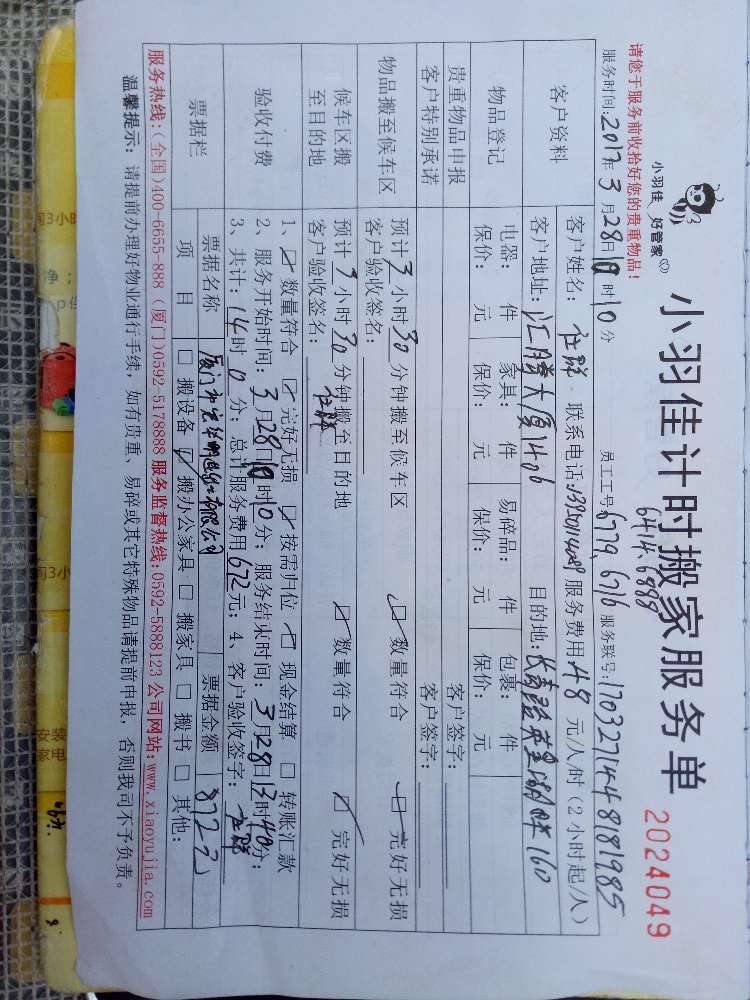 小羽佳 好管家
小羽佳计时搬家服务单
2024049
请您于服务前收拾好您的贵重物品！
6414、6888
服务时间：2017年3月28日 时10分 员工工号：6779、6716 服务联号：1703271448181985
客户资料
客户姓名： 杜 联系电话：13950114089 服务费用：48元/人/时（2小时起/人）
客户地址：汇腾大厦1406 目的地：长青路 湖畔160
物品登记
电器： 件 家具： 件 易碎品： 件 包裹： 件
保价： 元 保价： 元 保价： 元 保价： 元
贵重物品申报 客户签字：
客户特别承诺 客户签字：
物品搬至候车区
预计3小时30分钟搬至候车区 ☑数量符合 ☑完好无损
客户验收签名：
候车区搬至目的地
预计3小时30分钟搬至目的地 ☑数量符合 ☑完好无损
客户验收签名：杜
验收付费
1、☑数量符合 ☑完好无损 ☑按需归位 ☑现金结算 □转账汇款
2、服务开始时间：3月28日 时10分；服务结束时间：3月28日13时40分；
3、共计：14时0分；总计服务费用672元；4、客户验收签字：杜
票据栏
票据名称 厦门市 有限公司 票据金额 672元
项目 □搬设备 ☑搬办公家具 □搬家具 □搬书 □其他：
服务热线：(全国)400-6655-888 (厦门)0592-5178888 服务监督热线：0592-5888123 公司网站：www.xiaoyujia.com
温馨提示：请提前办理好物业通行手续，如有贵重、易碎或其它特殊物品请提前申报，否则我司不予负责。